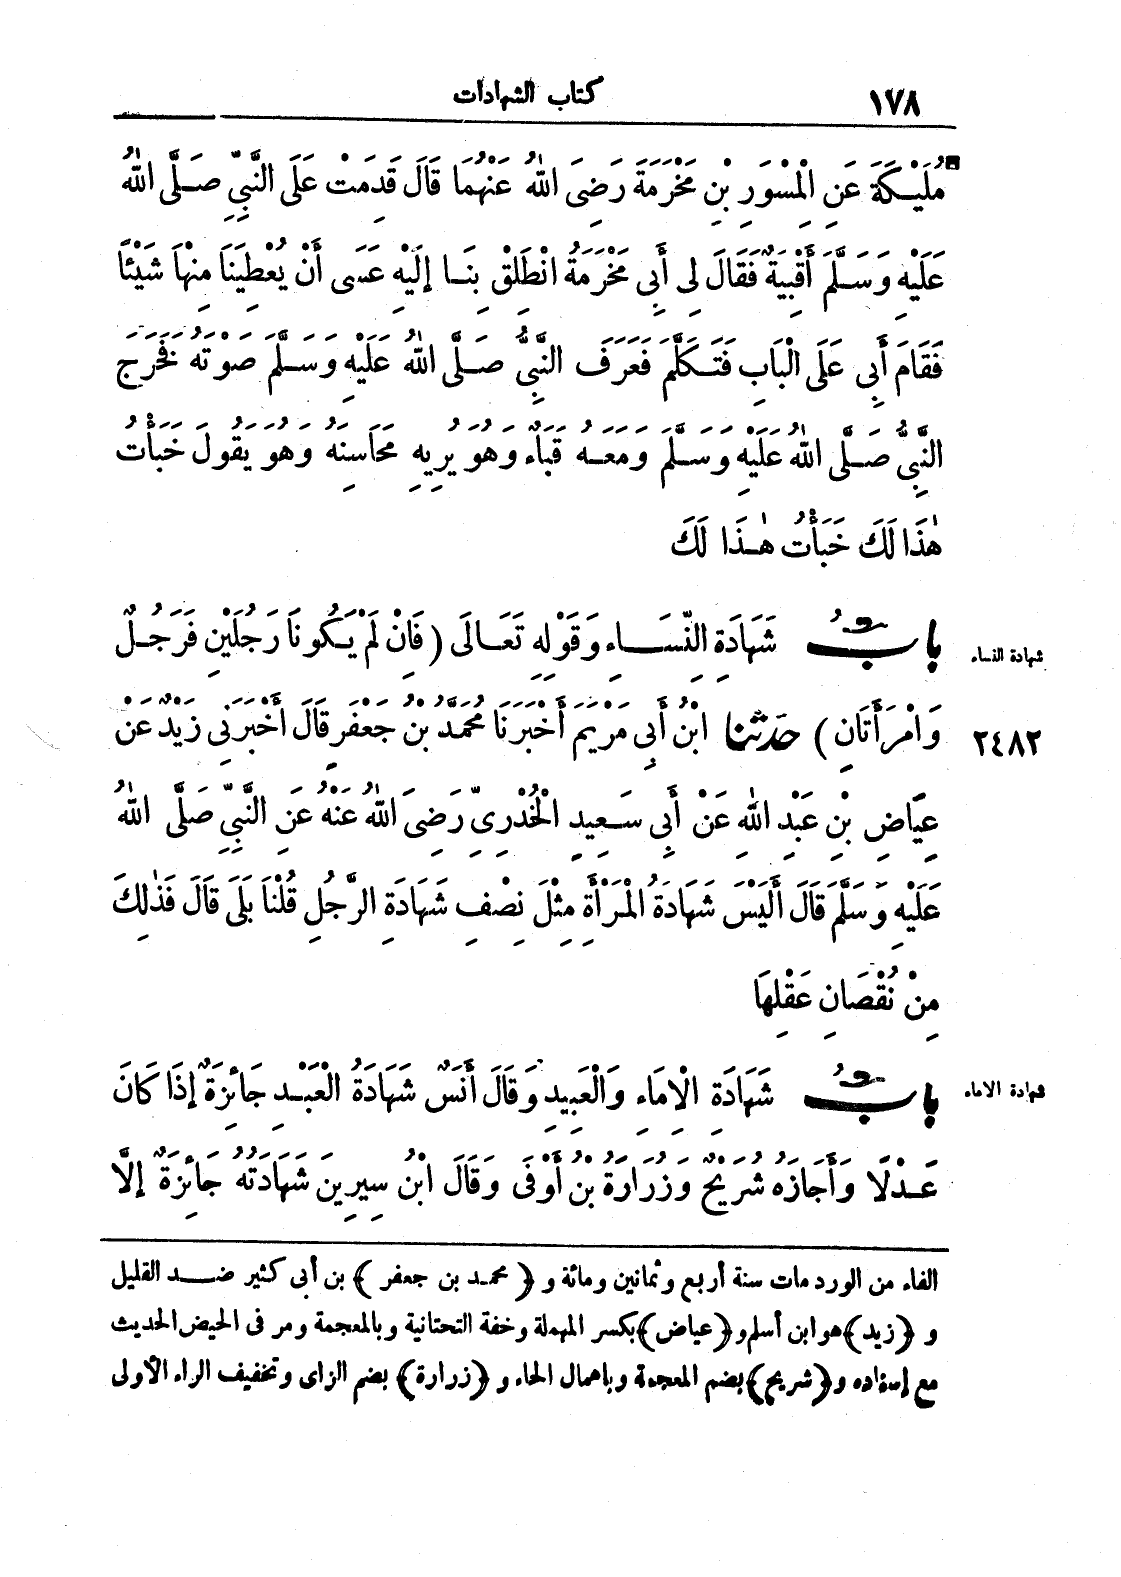 ١٧٨ كتاب الشهادات
مُلَيْكَةَ عَنِ الْمِسْوَرِ بْنِ مَخْرَمَةَ رَضِىَ اللهُ عَنْهُمَا قَالَ قَدِمَتْ عَلَى النَّبِىِّ صَلَّى اللهُ
عَلَيْهِ وَسَلَّمَ أَقْبِيَةٌ فَقَالَ لِى أَبِى مَخْرَمَةُ انْطَلِقْ بِنَا إِلَيْهِ عَسَى أَنْ يُعْطِيَنَا مِنْهَا شَيْئًا
فَقَامَ أَبِى عَلَى الْبَابِ فَتَكَلَّمَ فَعَرَفَ النَّبِىُّ صَلَّى اللهُ عَلَيْهِ وَسَلَّمَ صَوْتَهُ فَخَرَجَ
النَّبِىُّ صَلَّى اللهُ عَلَيْهِ وَسَلَّمَ وَمَعَهُ قَبَاءٌ وَهُوَ يُرِيهِ مَحَاسِنَهُ وَهُوَ يَقُولُ خَبَأْتُ
هٰذَا لَكَ خَبَأْتُ هٰذَا لَكَ
شهادة النساء
بابٌ شَهَادَةِ النِّسَاءِ وَقَوْلِهِ تَعَالَى ( فَانْ لَمْ يَكُونَا رَجُلَيْنِ فَرَجُلٌ
٢٤٨٢
وَامْرَأَتَانِ ) حَدَّثَنا ابْنُ أَبِى مَرْيَمَ أَخْبَرَنَا مُحَمَّدُ بْنُ جَعْفَرٍ قَالَ أَخْبَرَنِى زَيْدٌ عَنْ
عِيَاضِ بْنِ عَبْدِ اللهِ عَنْ أَبِى سَعِيدٍ الْخُدْرِىِّ رَضِىَ اللهُ عَنْهُ عَنِ النَّبِىِّ صَلَّى اللهُ
عَلَيْهِ وَسَلَّمَ قَالَ أَلَيْسَ شَهَادَةُ الْمَرْأَةِ مِثْلَ نِصْفِ شَهَادَةِ الرَّجُلِ قُلْنَا بَلَى قَالَ فَذٰلِكَ
مِنْ نُقْصَانِ عَقْلِهَا
شهادة الاماء
بابٌ شَهَادَةِ الْاِمَاءِ وَالْعَبِيدِ وَقَالَ أَنَسٌ شَهَادَةُ الْعَبْدِ جَائِزَةٌ إِذَا كَانَ
عَدْلًا وَأَجَازَهُ شُرَيْحٌ وَزُرَارَةُ بْنُ أَوْفَى وَقَالَ ابْنُ سِيرِينَ شَهَادَتُهُ جَائِزَةٌ إِلَّا
الفاء من الورد مات سنة أربع وثمانين ومائة و ﴿محمد بن جعفر﴾ بن أبى كثير ضد القليل
و ﴿زيد﴾ هو ابن أسلم و ﴿عياض﴾ بكسر المهملة وخفة التحتانية وبالمعجمة ومر فى الحيض الحديث
مع إسناده و ﴿شريح﴾ بضم المعجمة وباهمال الحاء و ﴿زرارة﴾ بضم الزاى وتخفيف الراء الأولى